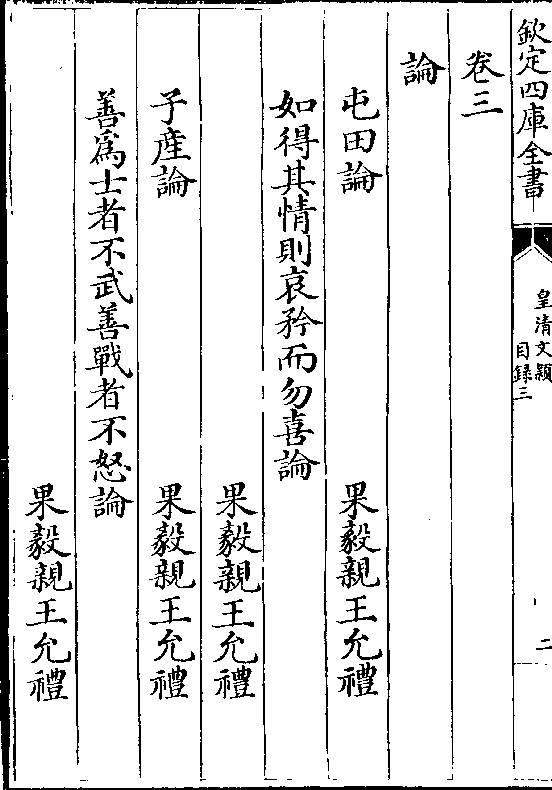 欽定四庫全書
皇清文穎
目録三
二
卷三
論
屯田論
果毅親王允禮
如得其情則哀矜而勿喜論
果毅親王允禮
子產論
果毅親王允禮
善爲士者不武善戰者不怒論
果毅親王允禮